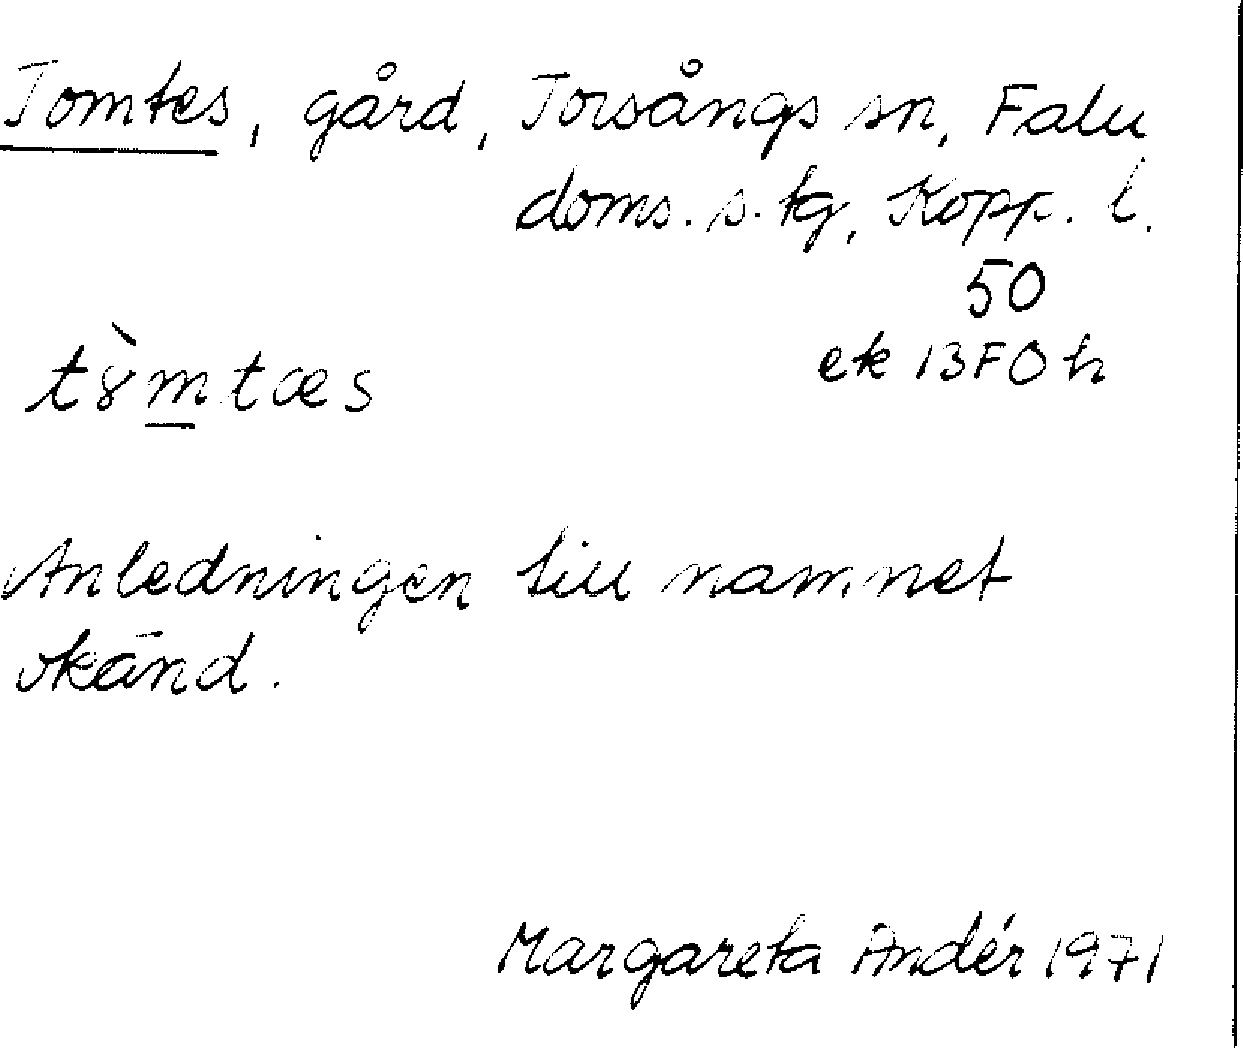 Tomtes, gård, Torsångs sn, Falu
doms. s. tg, Kopp. l.
50
ek 13F0h
tȣ̀m̲tæs
Anledningen till namnet
okänd.
Margareta Andér 1971